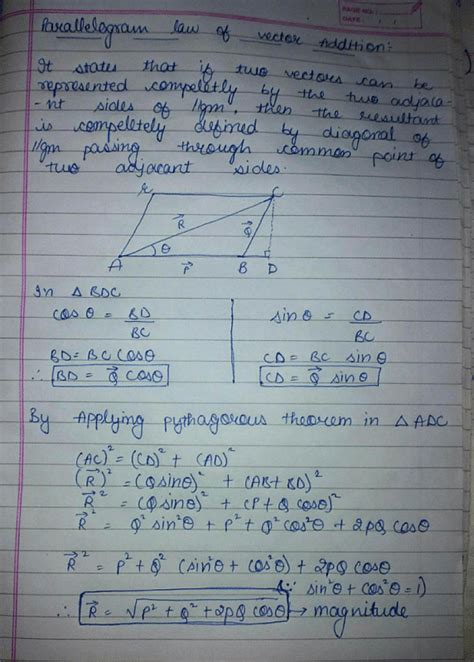 PAGE NO.:
DATE:
Parallelogram law of vector Addition:
It states that if two vectors can be
represented compeletly by the two adjaca-
-nt sides of llgm. then the resultant
is compeletely defined by diagonal of
llgm passing through common point of
two adjacant sides.
C
R⃗ Q⃗
θ
A P⃗ B D
In △ BDC
cos θ = BD/BC
BD = BC cosθ
∴ BD = Q⃗ cosθ
sin θ = CD/BC
CD = BC sin θ
CD = Q⃗ sin θ
By Applying pythagorous theorem in △ ADC
(AC)² = (CD)² + (AD)²
(R⃗)² = (Qsinθ)² + (AB+BD)²
R⃗² = (Qsinθ)² + (P+Q cosθ)²
R⃗² = Q² sin²θ + P² + Q² cos²θ + 2PQ cosθ
R⃗² = P² + Q² (sin²θ + cos²θ) + 2PQ cosθ
(∵ sin²θ + cos²θ = 1)
∴ R⃗ = √P² + Q² + 2PQ cosθ → magnitude